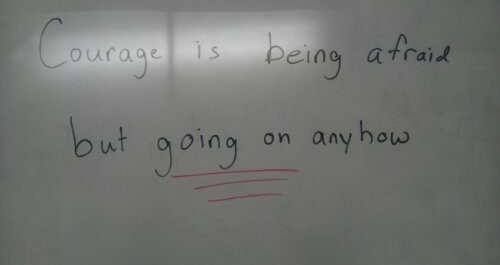 Courage is being afraid
but going on anyhow